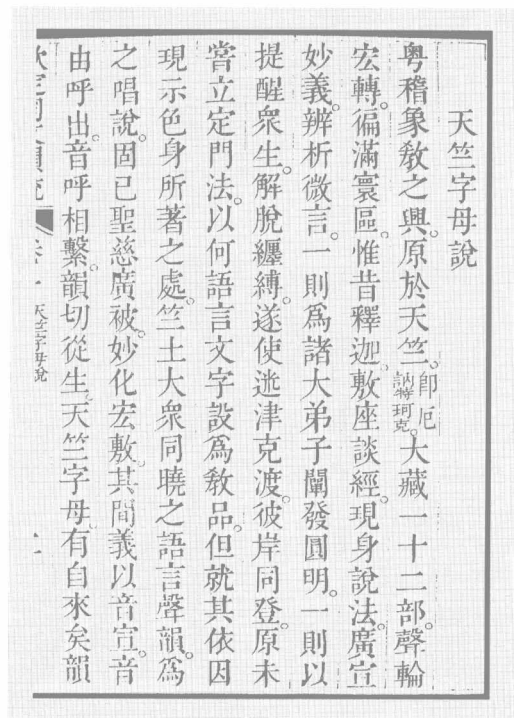 天竺字母說
粤稽象敎之興。原於天竺。卽厄訥特珂克。大藏一十二部。聲輪
宏轉。徧滿寰區。惟昔釋迦。敷座談經。現身說法。廣宣
妙義。辨析微言。一則爲諸大弟子闡發圓明。一則以
提醒衆生。解脫纏縛。遂使迷津克渡。彼岸同登。原未
嘗立定門法。以何語言文字設爲敎品。但就其依因
現示色身所著之處。竺土大衆同曉之語言聲韻。爲
之唱說。固已聖慈廣被。妙化宏敷。其間義以音宣。音
由呼出。音呼相繫。韻切從生。天竺字母。有自來矣韻
欽定同文韻統 卷一 天竺字母說 一